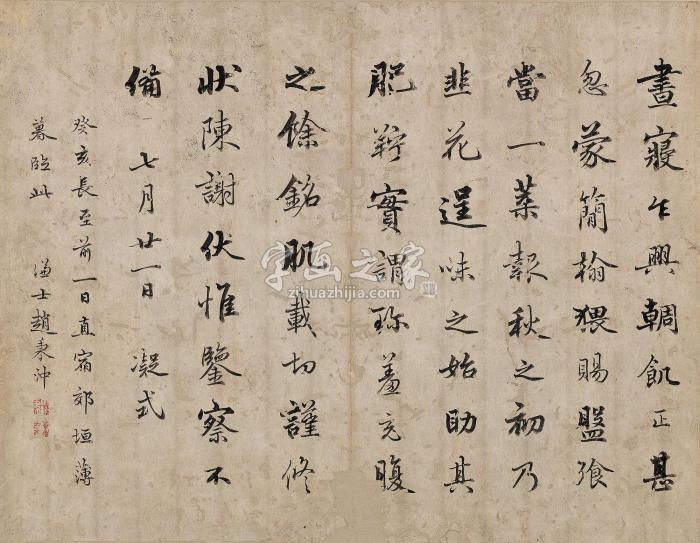 晝寢乍興輖飢正甚
忽蒙簡翰猥賜盤飧
當一葉報秋之初乃
韭花逞味之始助其
肥羜實謂珍羞充腹
之餘銘肌載切謹修
狀陳謝伏惟鑒察不
備 七月廿一日 凝式
癸亥長至前一日直宿郊垣薄
暮臨此 謙士趙秉沖
字画之家
zihuazhijia.com